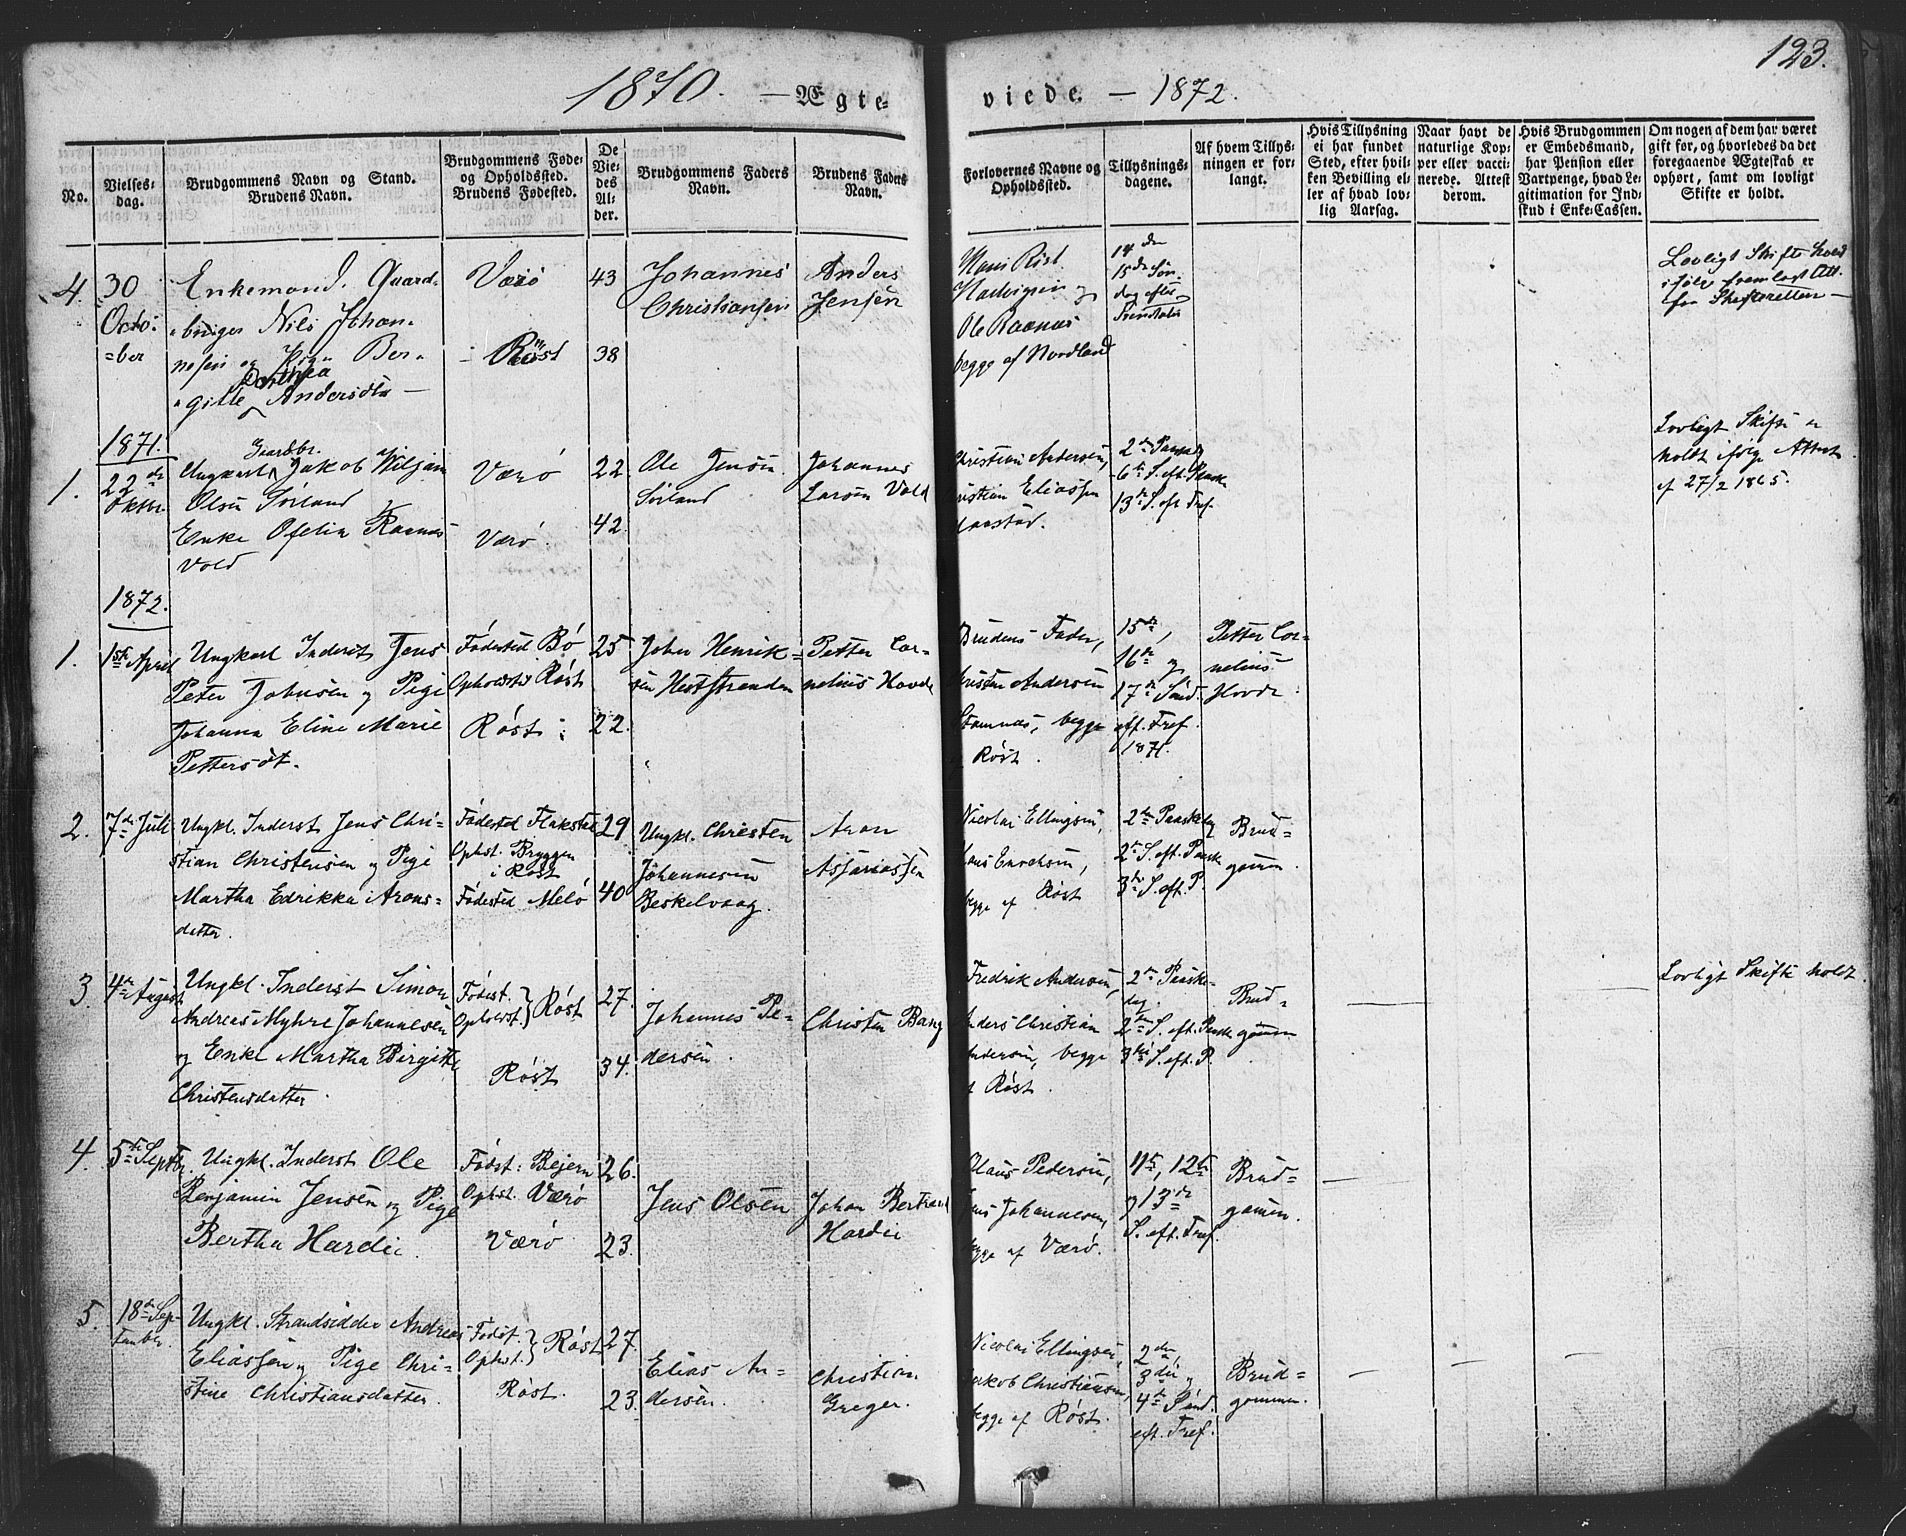 123.
1870. — Ægte-
viede. — 1872.
No.
Vielses-
dag.
Brudgommens Navn og Stand.
Brudens Navn.
Brudgommens Føde-
og Opholdssted.
Brudens Fødested.
De
Vie-
des
Al-
der.
Brudgommens Faders
Navn.
Brudens Faders
Navn.
Forlovernes Navne og
Opholdssted.
Tillysnings-
dagene.
Af hvem Tillys-
ningen er for-
langt.
Hvis Tillysning
ei har fundet
Sted, efter hvil-
ken Bevilling el-
ler af hvad lov-
lig Aarsag.
Naar havt de
naturlige Kop-
per eller vacci-
nerede. Attest
derom.
Hvis Brudgommen
er Embedsmand,
har Pension eller
Vartpenge, hvad Le-
gitimation for Ind-
skud i Enke-Cassen.
Om nogen af dem har været
gift før, og hvorledes da det
foregaaende Ægteskab er
ophørt, samt om lovligt
Skifte er holdt.
4.
30
Octo-
=ber
Enkemand, Gaard-
=bruger Nils Johan-
nesen og Pige Ber-
Dorthea
=gitte Andersdtr —
Værö
Røst
43
38
Johannes
Christiansen
Anders
Jensen
Hans Röst
Hartvigsen og
Ole Raanas
begge af Nordland
14 de
15 de Søn
dag efter
Trinitatis
Lovligt Skifte hold
ifølge fremlagt Att.
fra Skifteretten —
1871.
1.
22 de
Oktbr.
Gaardbr.
Ungkarl Jakob Wiljam
Olsen Sörland
Enke Ofelia Raanas
Vold
Værö
Værö.
22
42.
Ole Jensen
Sörland
Johannes
Larsen Vold
Christian Andersen,
Kristian Eliassen
2 den Paaskedag
6 te S. eft. Paaske
13 de S. eft Tref.
Lovligt Skifte er
holdt ifølge Attest
af 27/2 1865.
1872.
1.
1ste April
Ungkarl Inderst Jens
Peter Johnsen og Pige
Johanna Eline Marie
Pettersdt.
Fødested Bö
Opholdsst. Röst
Röst.
25
22.
Johan Henrik-
sen Heststranden
Petter Cor-
nelius Hovde
Brudens Fader,
Kristen Andersen
Stamnæs, begge
Röst.
15 de,
16 de og
17 de Sönd.
eft. Tref.
1871.
Petter Cor-
nelius
Hovde.
2.
7 de Juli
Ungkl. Inderst Jens Chri-
stian Christensen og Pige
Martha Edrikka Arons-
datter.
Födested Flakstad
Ophst. Bryggen
i Röst
Födested Melö
29
40
Ungkl. Christen
Johannesen
Beskelvaag.
Aron
Assariassen
Nicolai Ellingsen,
Hans Enochsen,
begge af Röst
2 den Paaskedag
2 den S. eft. Paaske
3 die S. eft. P.
Brud-
gommen.
3.
4 de August
Ungkl. Inderst Simon
Andreas Myhre Johannesen
og Enke Martha Birgitte
Christensdatter.
Födest.
Opholdst. } Röst
Röst
27.
34.
Johannes Pe-
dersen.
Christen Bang
Fredrik Andersen,
Anders Christian
Andersen, begge
af Röst.
2 den Paaske-
dag.
2 den S. eft. Paaske
3 die S. eft. P.
Brud-
gommen
Lovligt Skifte holdt.
4.
5 te Septbr.
Ungkl. Inderst Ole
Benjamin Jensen og Pige
Bertha Hardie.
Födst: Bejern
Ophst. Værö
Værö
26.
23.
Jens Olsen
Johan Bertrand
Hardie
Claus Pedersen,
Jens Johannesen,
begge af Værö.
11 te, 12 te
og 13 de
S. eft. Tref.
Brud-
gommen.
5.
18 de Sep-
tember.
Ungkl. Strandsidder Andreas
Eliassen og Pige Chri-
stine Christiansdatter.
Födst.
Ophst. } Röst
Röst.
27.
23.
Elias An-
dersen.
Christian
Greger.
Nicolai Ellingsen,
Jakob Christiansen,
begge af Röst.
2 den,
3 die og
4 de Sönd.
eft. Tref.
Brud-
gommen.